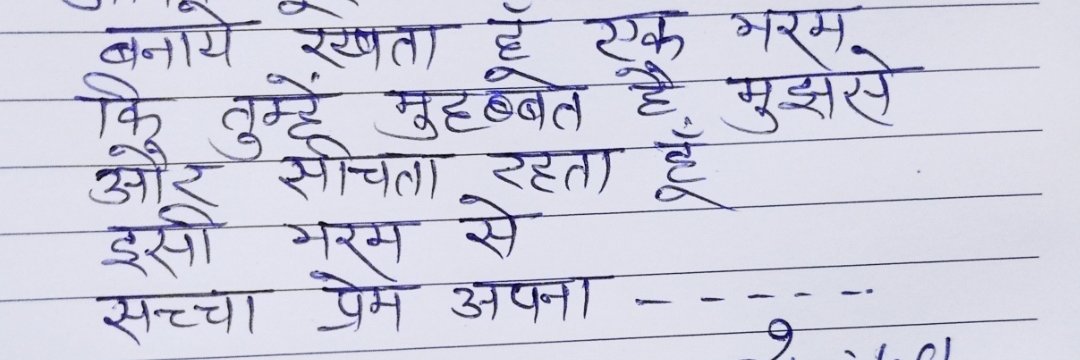 बनाये रखता हूँ एक भरम
कि तुम्हें मुहब्बत है मुझसे
और सींचता रहता हूँ
इसी भरम से
सच्चा प्रेम अपना ------